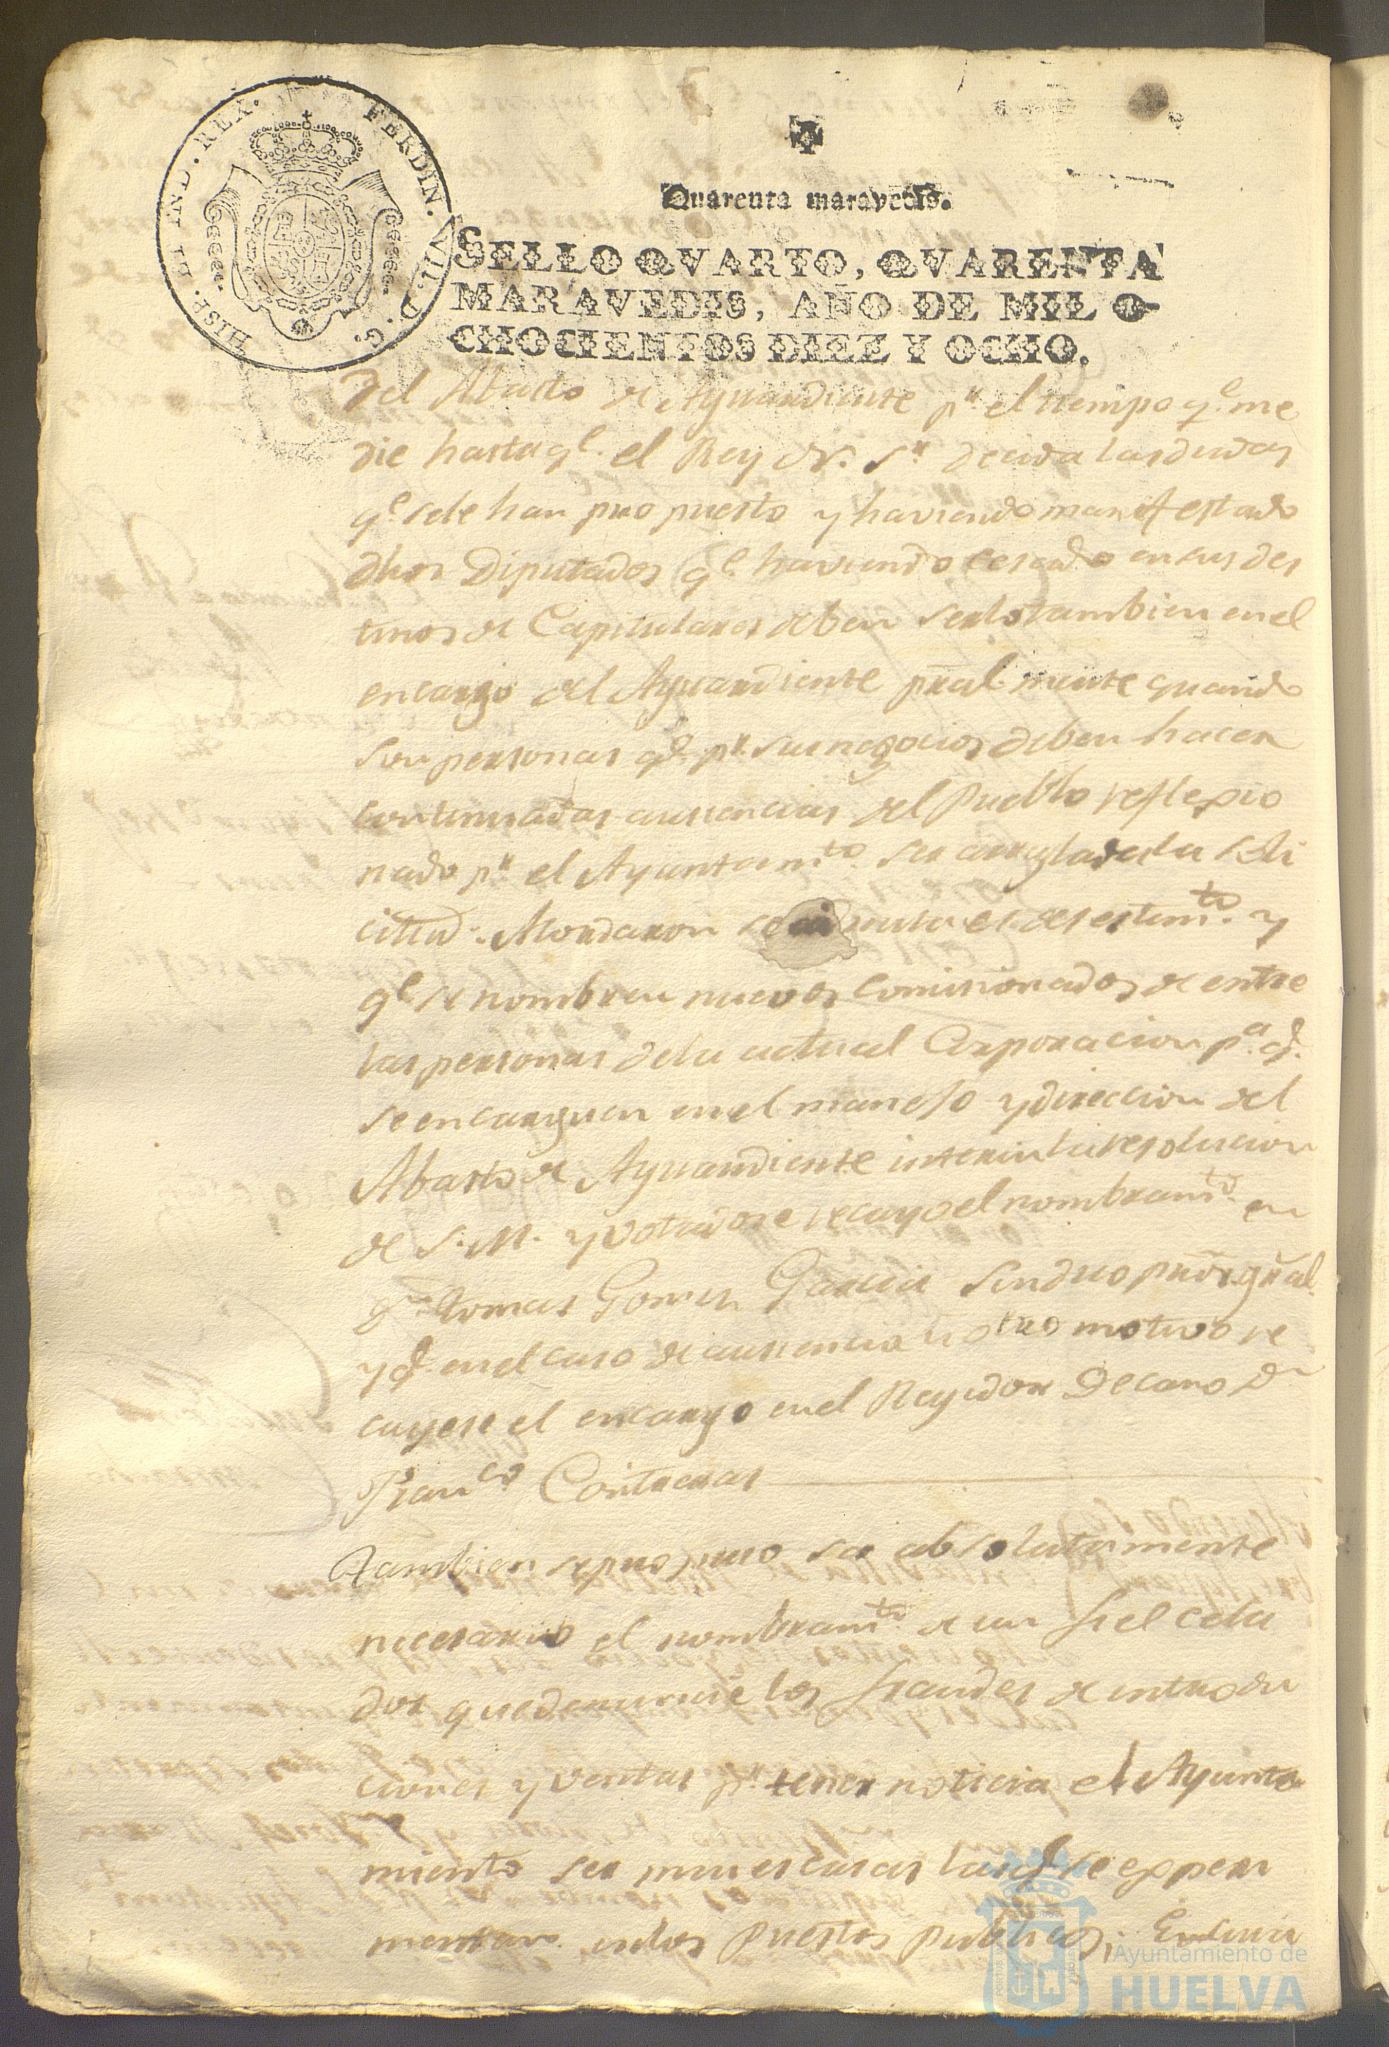 HISP. ET IND. REX. FERDIN. VII. D. G.
Quarenta maravedis.
SELLO QVARTO, QVARENTA
MARAVEDIS, AÑO DE MIL O-
CHOCIENTOS DIEZ Y OCHO.
del Abasto de Aguardiente pr. el tiempo qe. me
die hasta qe. el Rey N. Sr. decida las dudas
qe. se le han propuesto y haviendo manifestado
dhos Diputados qe. haviendo cesado en sus des
tinos de Capitulares deben serlo tambien en el
encargo del Aguardiente pralmente quando
son personas qe. pr. sus negocios deben hacer
continuadas ausencias del Pueblo reflexio
nado pr. el Ayuntamto. ser arreglada la soli
citud. Acordaron se desestimto. y
qe. se nombren nuevos comisionados de entre
las personas de la actual Corporacion pa. qe.
se encarguen en el manejo y direccion del
Abasto de Aguardiente interin la resolucion
de S. M. y votadose recayo el nombramto. en
Dn. Tomas Gomez Garcia Sindico pror. gral.
y qe. en el caso de ausencia u otro motivo re
cayese el encargo en el Regidor Decano Dn
Franco Contreras
Tambien se propuso ser absolutamente
necesario el nombramto. de un fiel cela
dor que denuncie los fraudes de introdu
ciones y ventas pr. tener noticia el Ayunta
miento ser muy escasas las qe. se experi
mentan en los Puestos publicos;
Ayuntamiento de
HUELVA